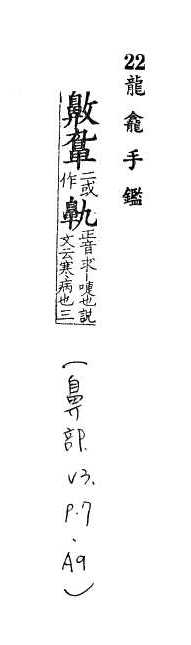 22 龍龕手鑑
二或
作
鼽
正音求丨也說
文云寒病也三
(鼻部. V3. P.7、A9)